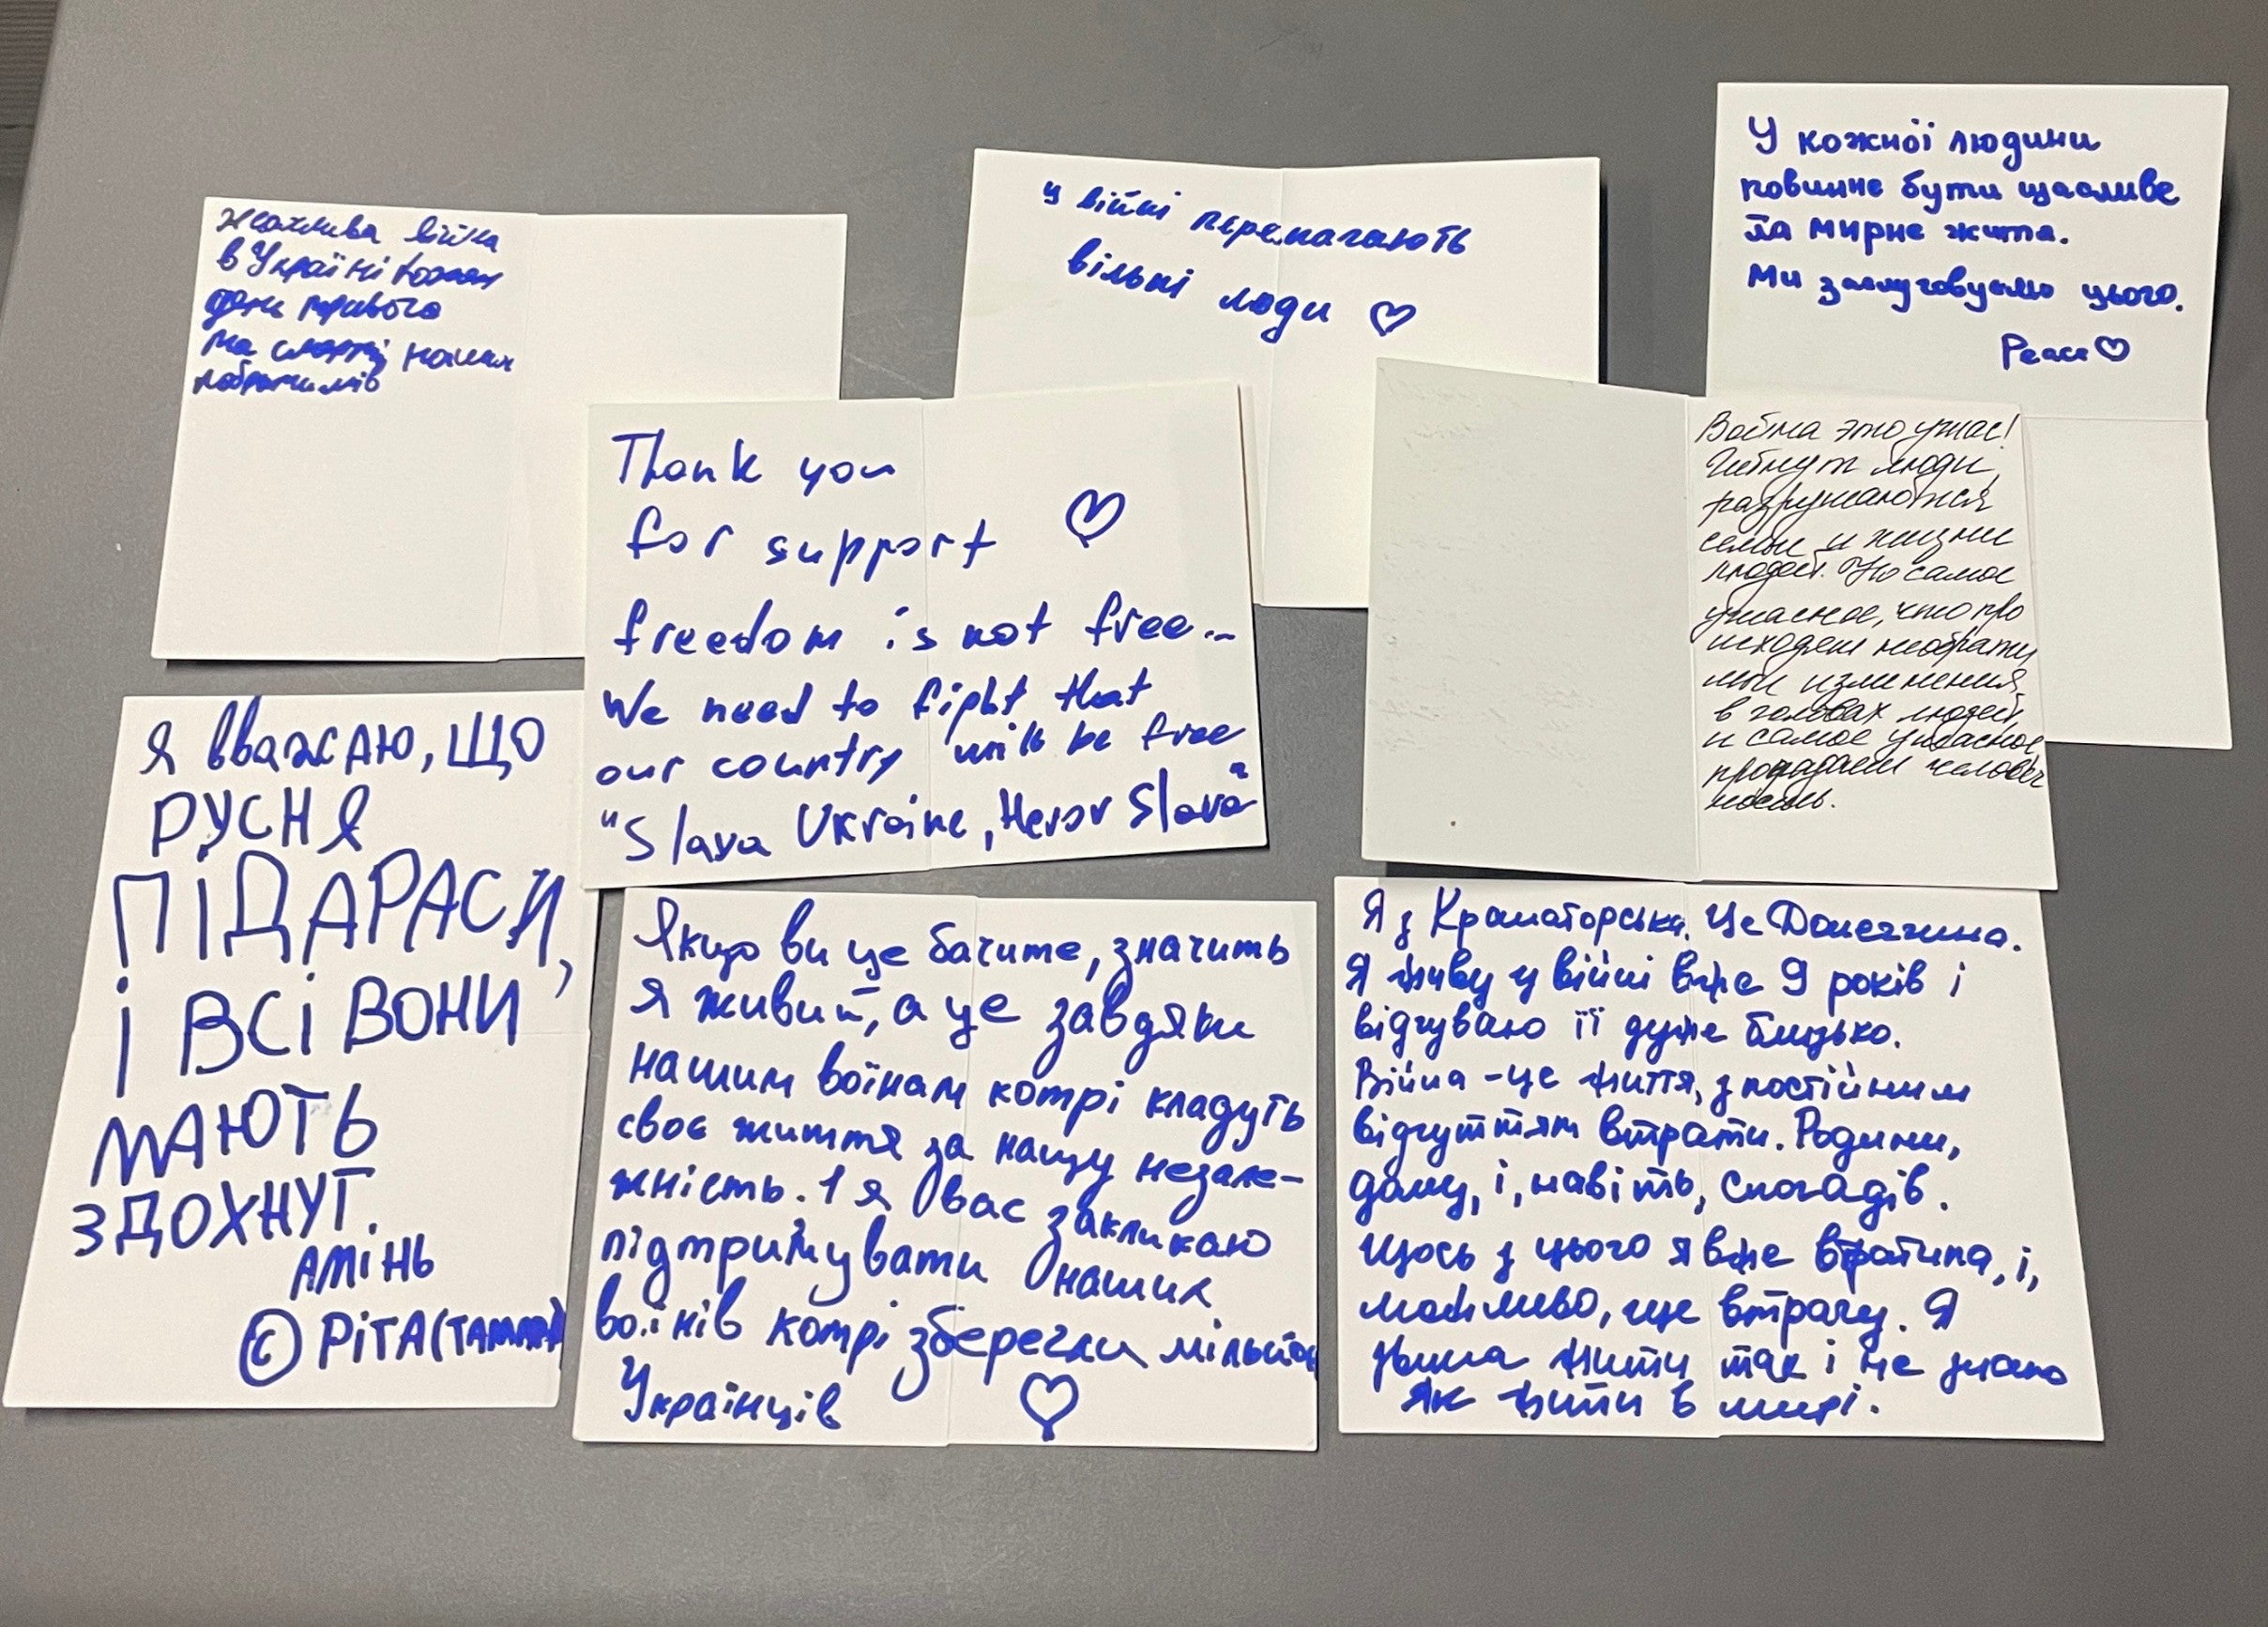 Жахлива війна
в Україні кожен
день тривога
на смерті наших
побратимів
у війні перемагають
вільні люди
У кожної людини
повинне бути щасливе
та мирне житя.
Ми заслуговуемо цього.
Peace
Thank you
for support
freedom is not free...
We need to fight that
our country will be free
"Slava Ukraine, Heror Slava"
Война это ужас!
Гибнут люди,
разрушаются
семьи и жизни
людей. Но самое
ужасное, что про
исходят необрати
мые изменения
в головах людей,
и самое ужасное
пропадает человеч
ность.
Я вважаю, що
РУСНЯ
ПІДАРАСИ,
І ВСІ ВОНИ
МАЮТЬ
ЗДОХНУТ.
АМІНЬ
© РІТА
Якщо ви це бачите, значить
я живий, а це завдяки
нашим воїнам котрі кладуть
своє життя за нашу незале-
жність. І я вас закликаю
підтримувати наших
воїнів котрі зберегли мільйон
Українців
Я з Краматорська. Це Донеччина.
Я живу у війні вже 9 років і
відчуваю її дуже близько.
Війна - це життя, з постійним
відчуттям втрати. Родини,
дому, і, навіть, спогадів.
Щось з цього я вже втратила, і,
можливо, ще втрачу. Я
звикла жити так і не знаю
як жити в мирі.